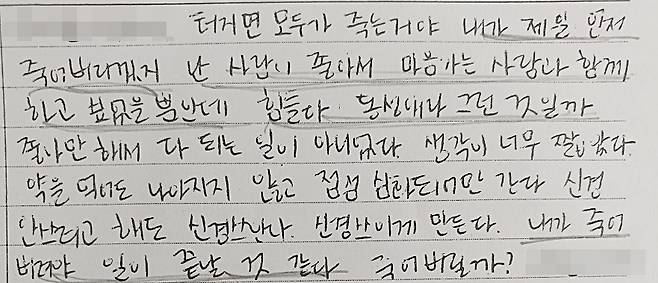 터지면 모두가 죽는거야 내가 제일 먼저
죽어버리겠지 난 사람이 좋아서 마음가는 사람과 함께
하고 싶었을 뿐인데 힘들다. 동성애라 그런 것일까
좋아만 해서 다 되는 일이 아니었다. 생각이 너무 짧았다.
약을 먹어도 나아지지 않고 점점 심하되기만 간다 신경
안쓰려고 해도 신경쓰인다. 신경쓰이게 만든다. 내가 죽어
버려야 일이 끝날 것 같다 죽어버릴까?